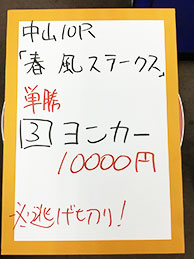 中山10R
「春風ステークス」
単勝
3 ヨンカー
10000円
※逃げ切り!